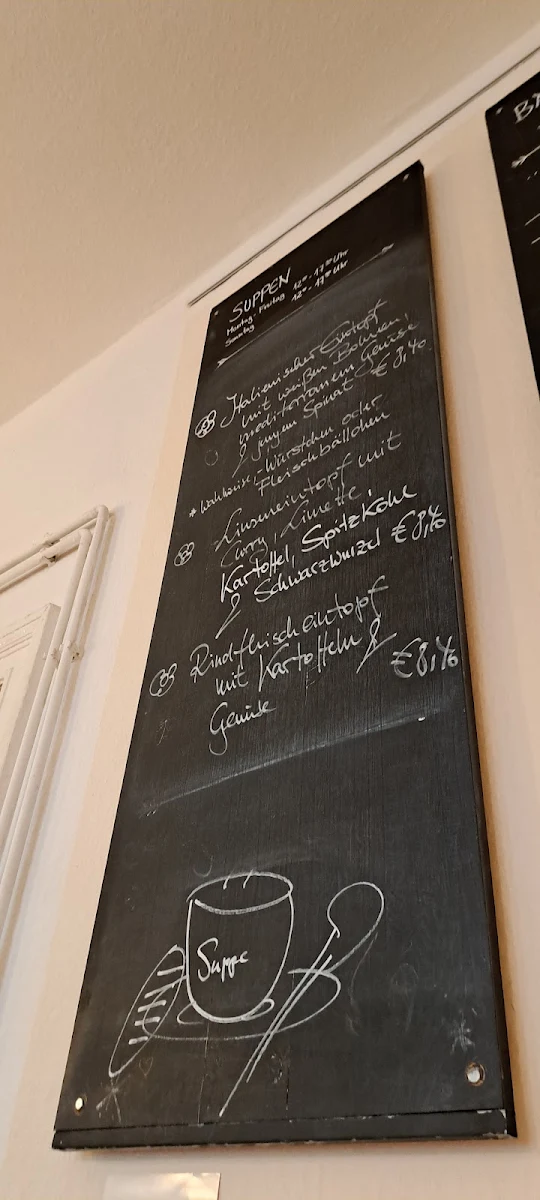 SUPPEN
Montag - Freitag 12⁰⁰ - 17⁰⁰ Uhr
Sonntag 12⁰⁰ - 17⁰⁰ Uhr
Italienischer Eintopf
mit weißen Bohnen,
mediterranem Gemüse
& jungem Spinat € 8,40
* wahlweise: Würstchen oder
Fleischbällchen
Linseneintopf mit
Curry, Limette
Kartoffel, Spitzkohl
& Schwarzwurzel € 8,40
Rindfleischeintopf
mit Kartoffeln &
Gemüse € 8,40
Suppe